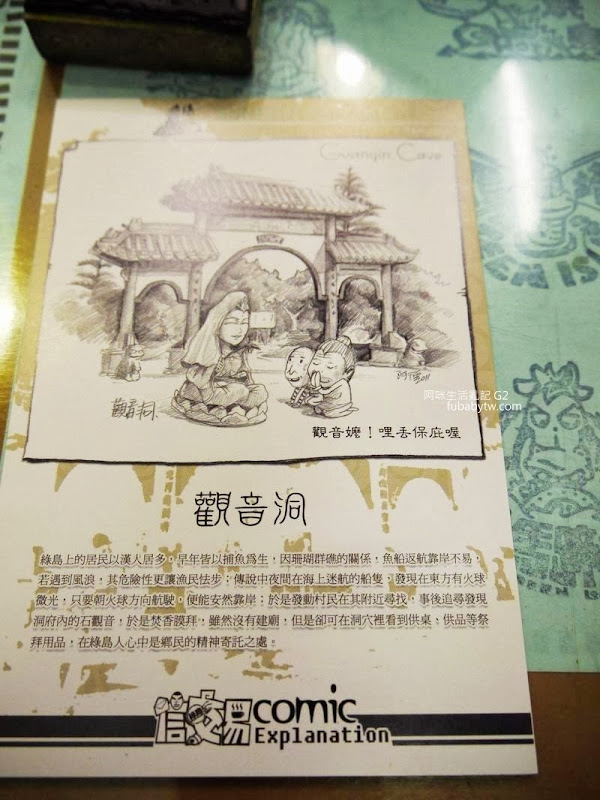 Guanyin Cave
觀音洞
阿咪生活札記 G2
fubabytw.com
觀音嬤！哩丟保庇喔
觀音洞
綠島上的居民以漢人居多，早年皆以捕魚為生，因珊瑚群礁的關係，魚船返航靠岸不易，
若遇到風浪，其危險性更讓漁民怯步；傳說中夜間在海上迷航的船隻，發現在東方有火球
微光，只要朝火球方向航駛，便能安然靠岸；於是發動村民在其附近尋找，事後追尋發現
洞府內的石觀音，於是焚香膜拜，雖然沒有建廟，但是卻可在洞穴裡看到供桌，供品等祭
拜用品，在綠島人心中是鄉民的精神寄託之處。
comic
Explanation